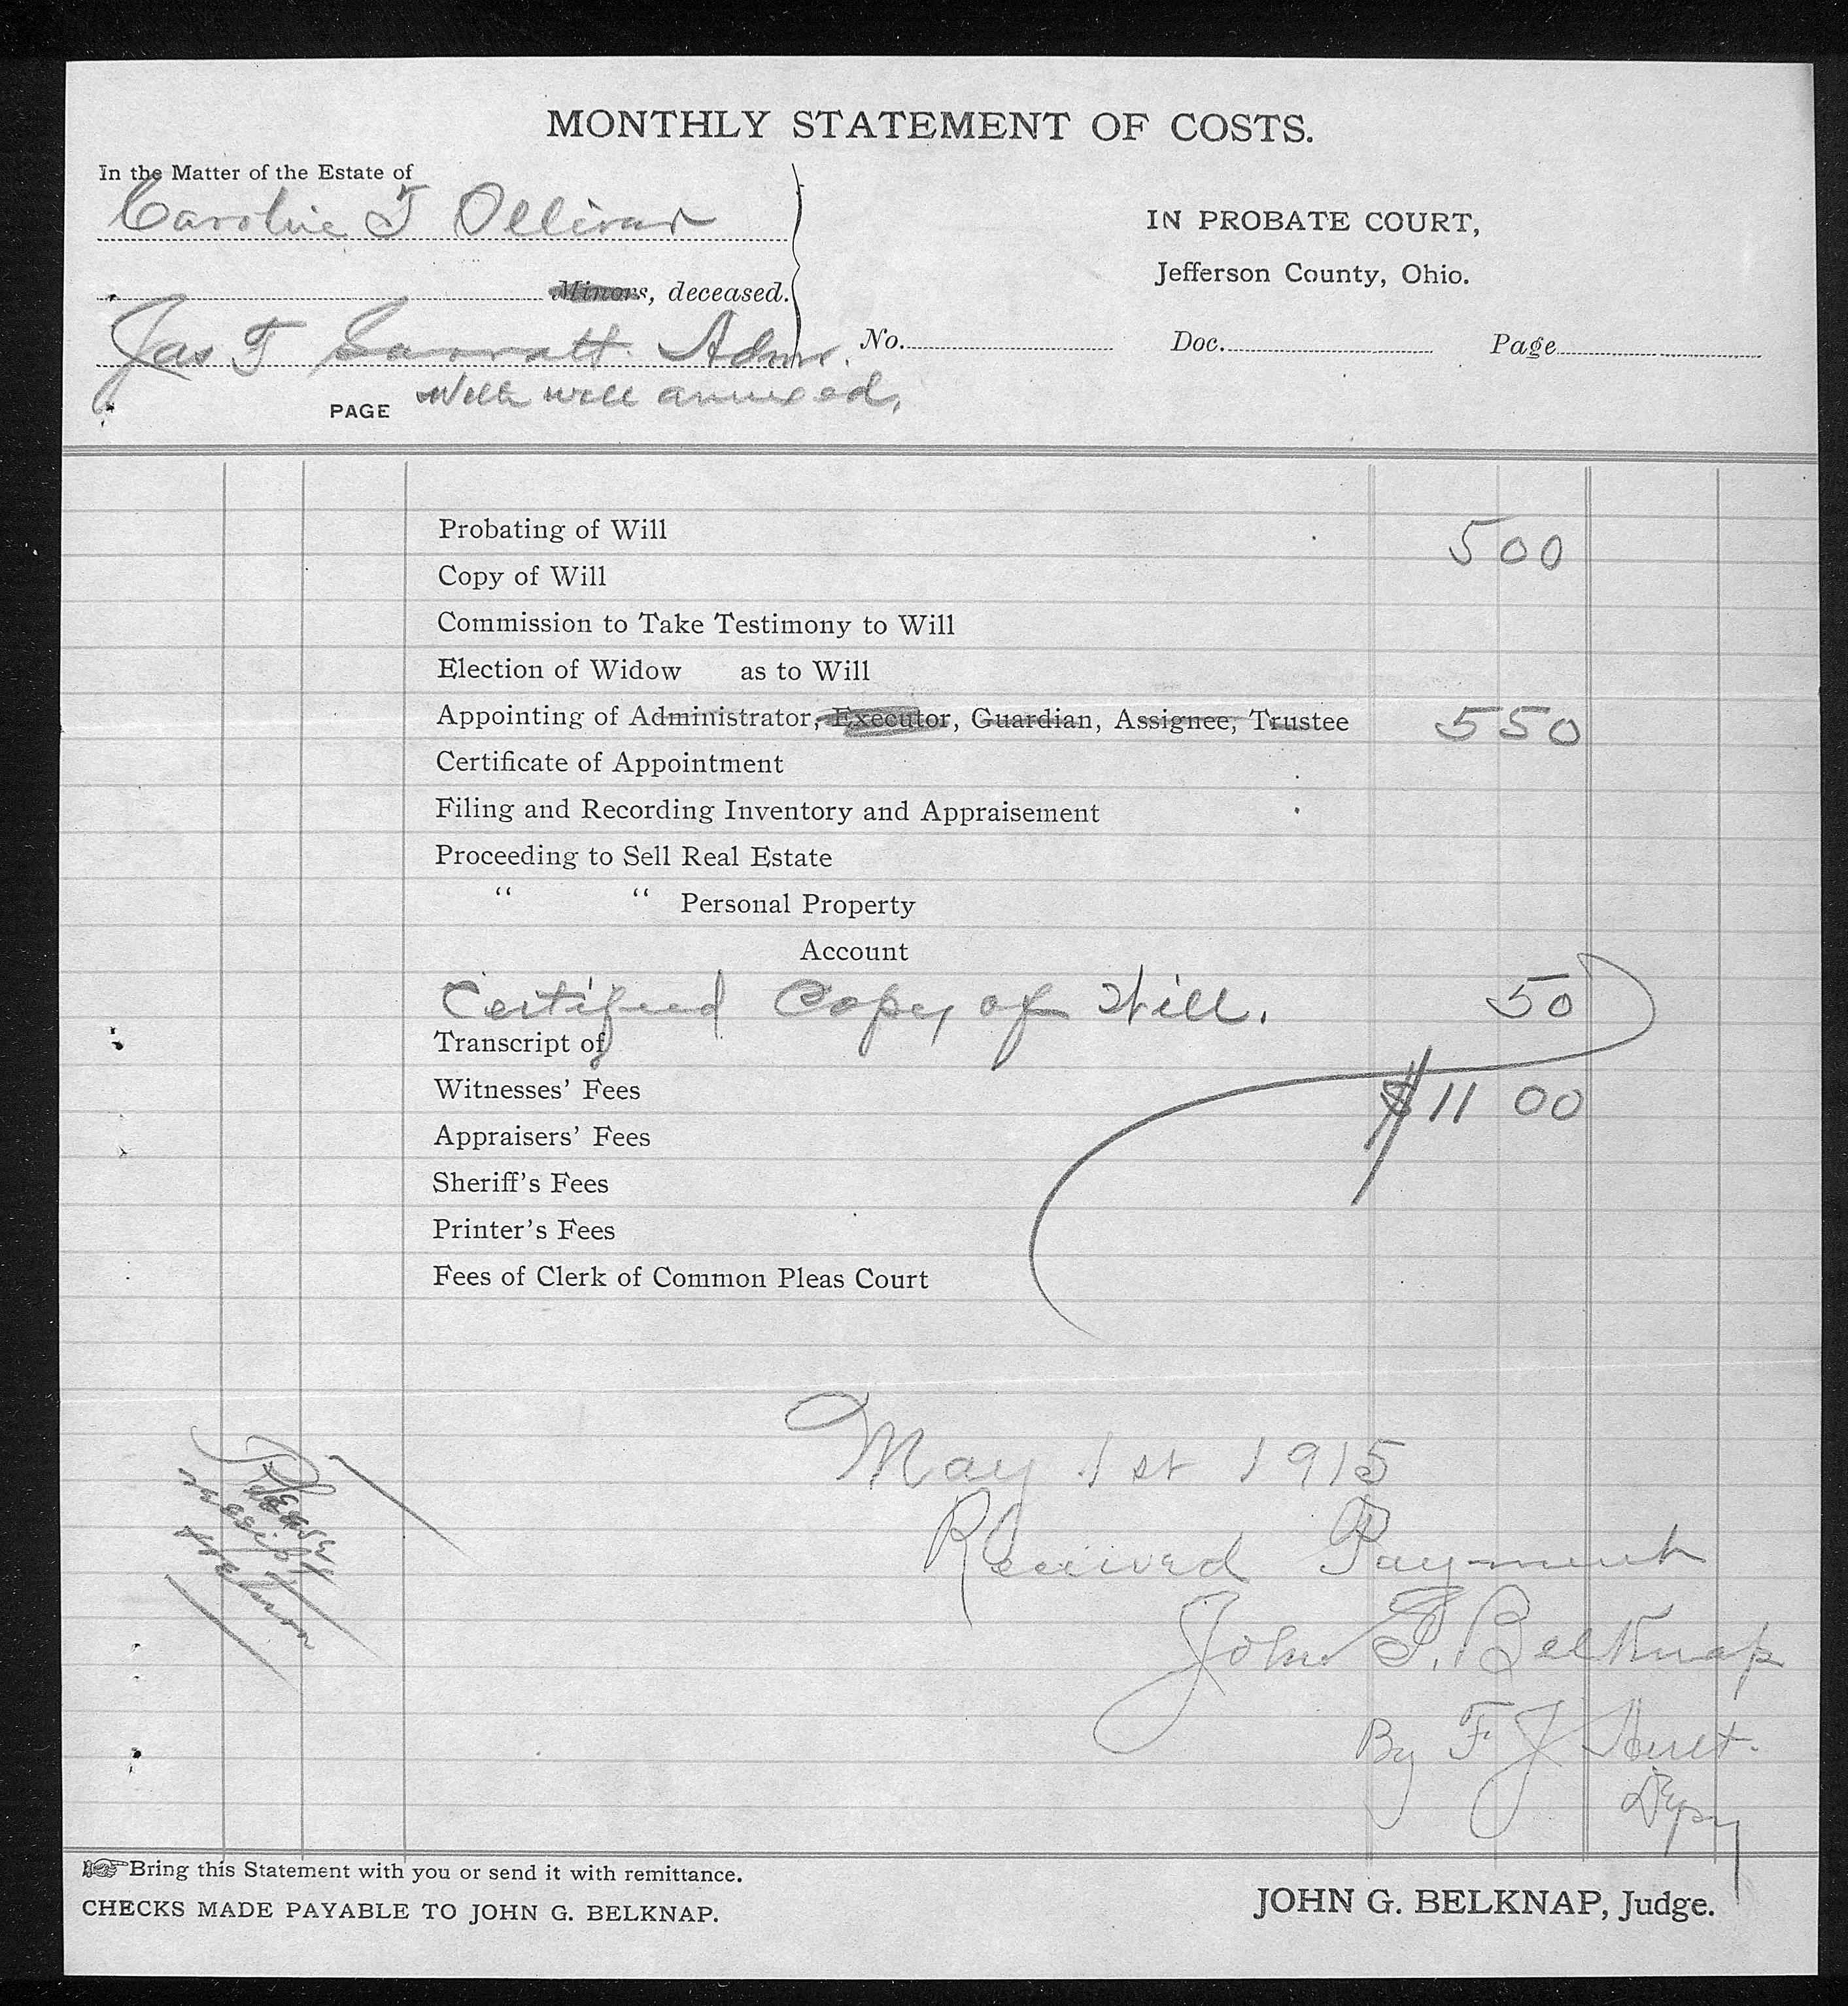 MONTHLY STATEMENT OF COSTS.
In the Matter of the Estate of
Caroline T
IN PROBATE COURT,
Jefferson County, Ohio.
Minors, deceased.
Jas T Sarratt Admr.
No. Doc. Page
PAGE With will annexed,
Probating of Will 5 00
Copy of Will
Commission to Take Testimony to Will
Election of Widow as to Will
Appointing of Administrator, Executor, Guardian, Assignee, Trustee 5 50
Certificate of Appointment
Filing and Recording Inventory and Appraisement
Proceeding to Sell Real Estate
“ “ Personal Property
Account
Certified Copy of Will. 50
Transcript of
Witnesses’ Fees $11 00
Appraisers’ Fees
Sheriff’s Fees
Printer’s Fees
Fees of Clerk of Common Pleas Court
May 1st 1915
Received Payment
John G. Belknap
By F J
Depy
Please
receipt
return
☞Bring this Statement with you or send it with remittance.
CHECKS MADE PAYABLE TO JOHN G. BELKNAP.
JOHN G. BELKNAP, Judge.